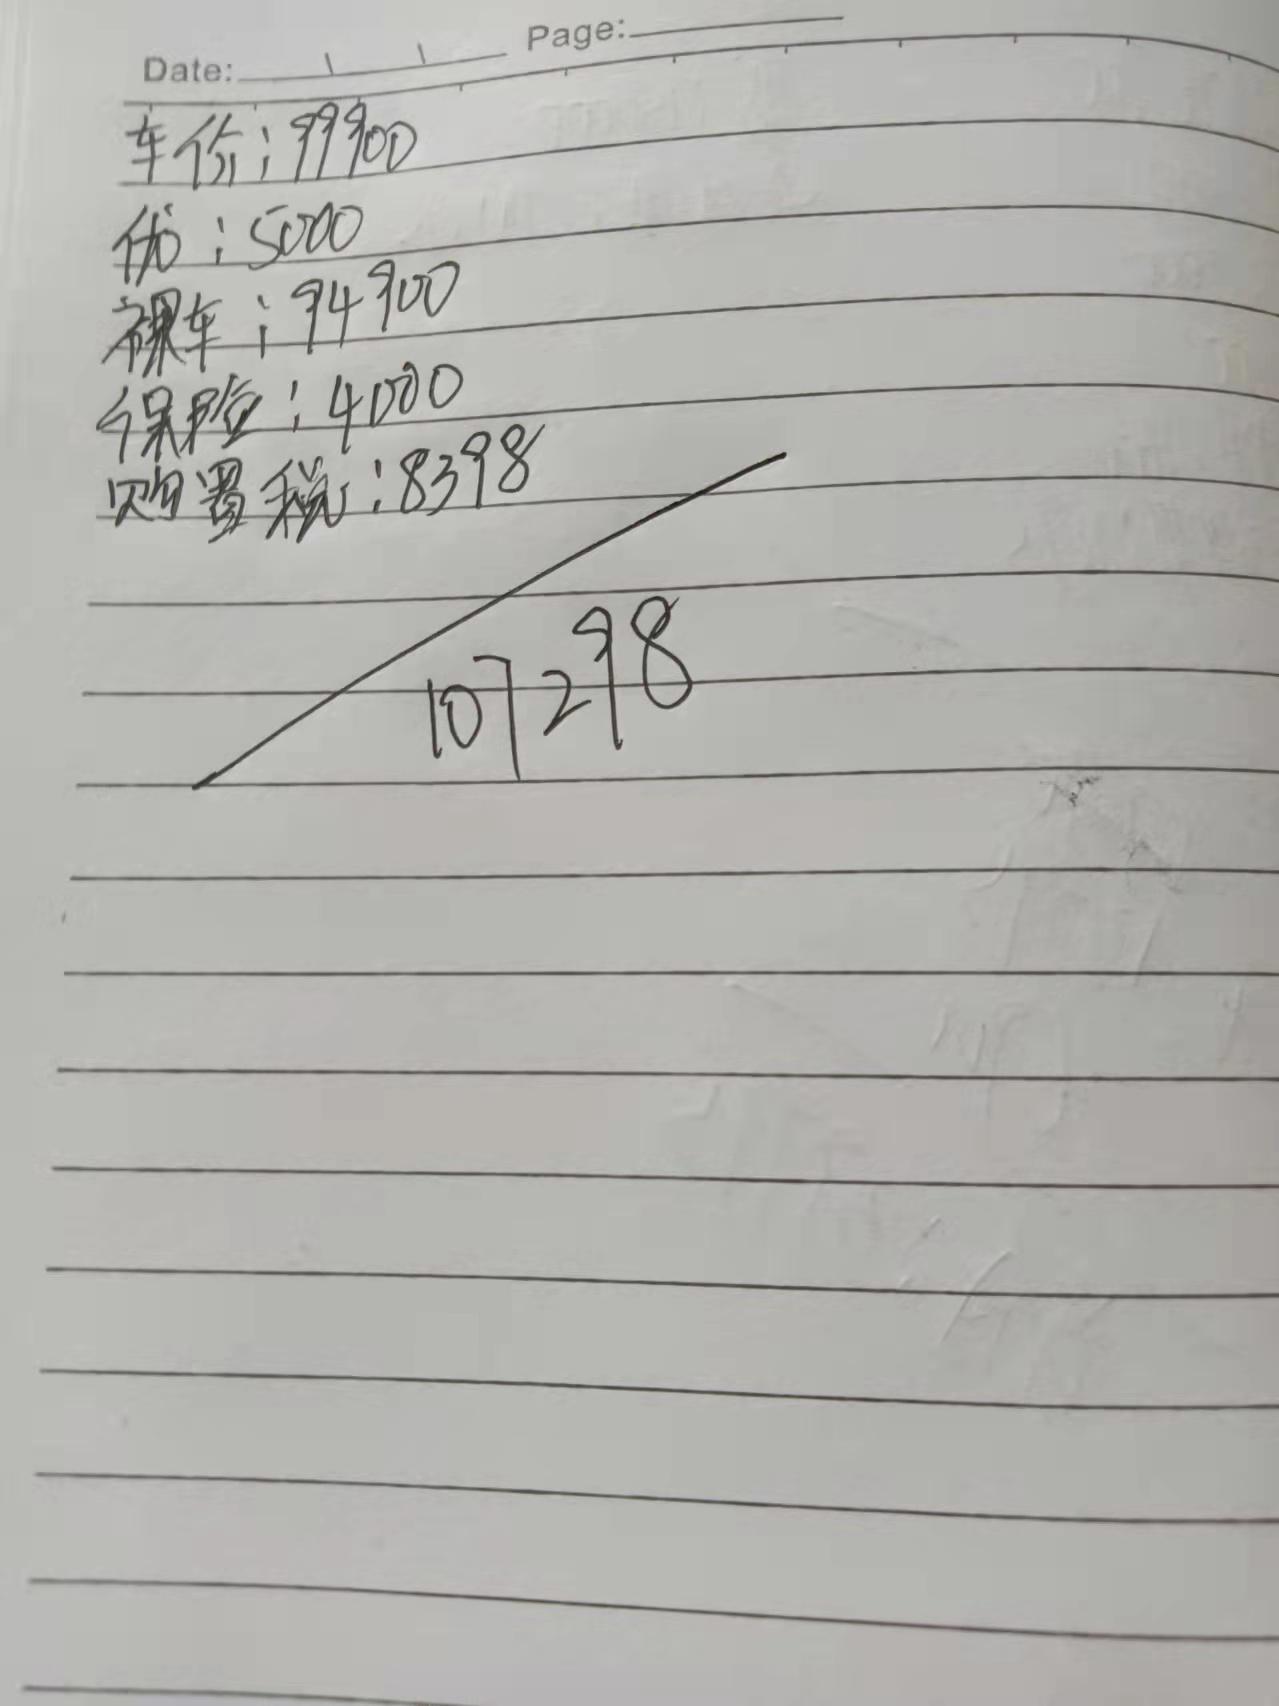 Date: Page:
车价:99900
优:5000
裸车:94900
保险:4000
购置税:8398
107298